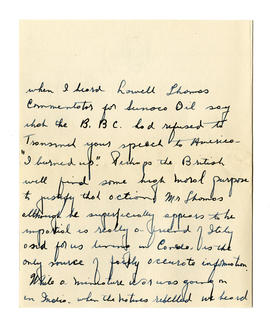 when I heard Lowell Thomas
Commentator for Sunoco Oil say
that the B.B.C. had refused to
Transmit your speech to America
"I burned up". Perhaps the British
will find some high moral purpose
to justify that action. Mr Thomas
although he superficially appears to be
impartial is really a friend of Italy
and for us living in Canada is the
only source of fairly accurate information.
While a miniature war was going on
in India. when the natives rebelled we heard